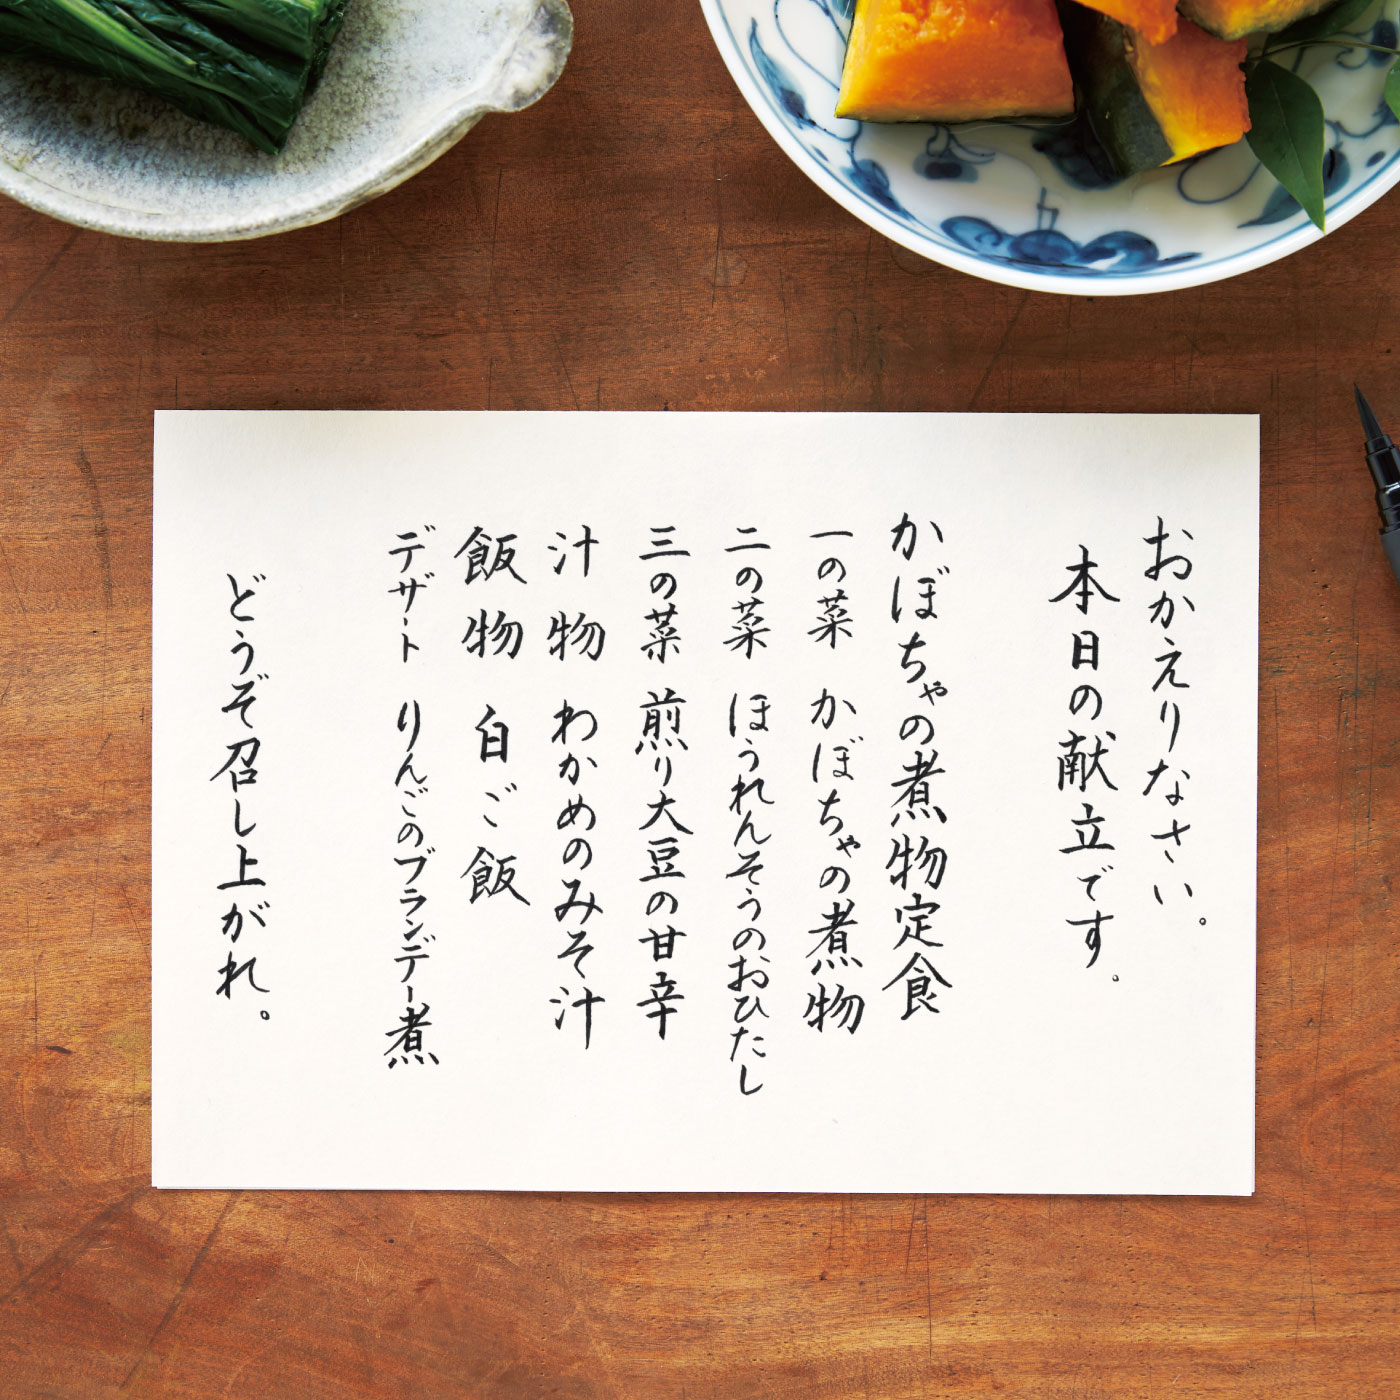 おかえりなさい。
本日の献立です。
かぼちゃの煮物定食
一の菜 かぼちゃの煮物
二の菜 ほうれんそうのおひたし
三の菜 煎り大豆の甘辛
汁物 わかめのみそ汁
飯物 白ご飯
デザート りんごのブランデー煮
どうぞ召し上がれ。